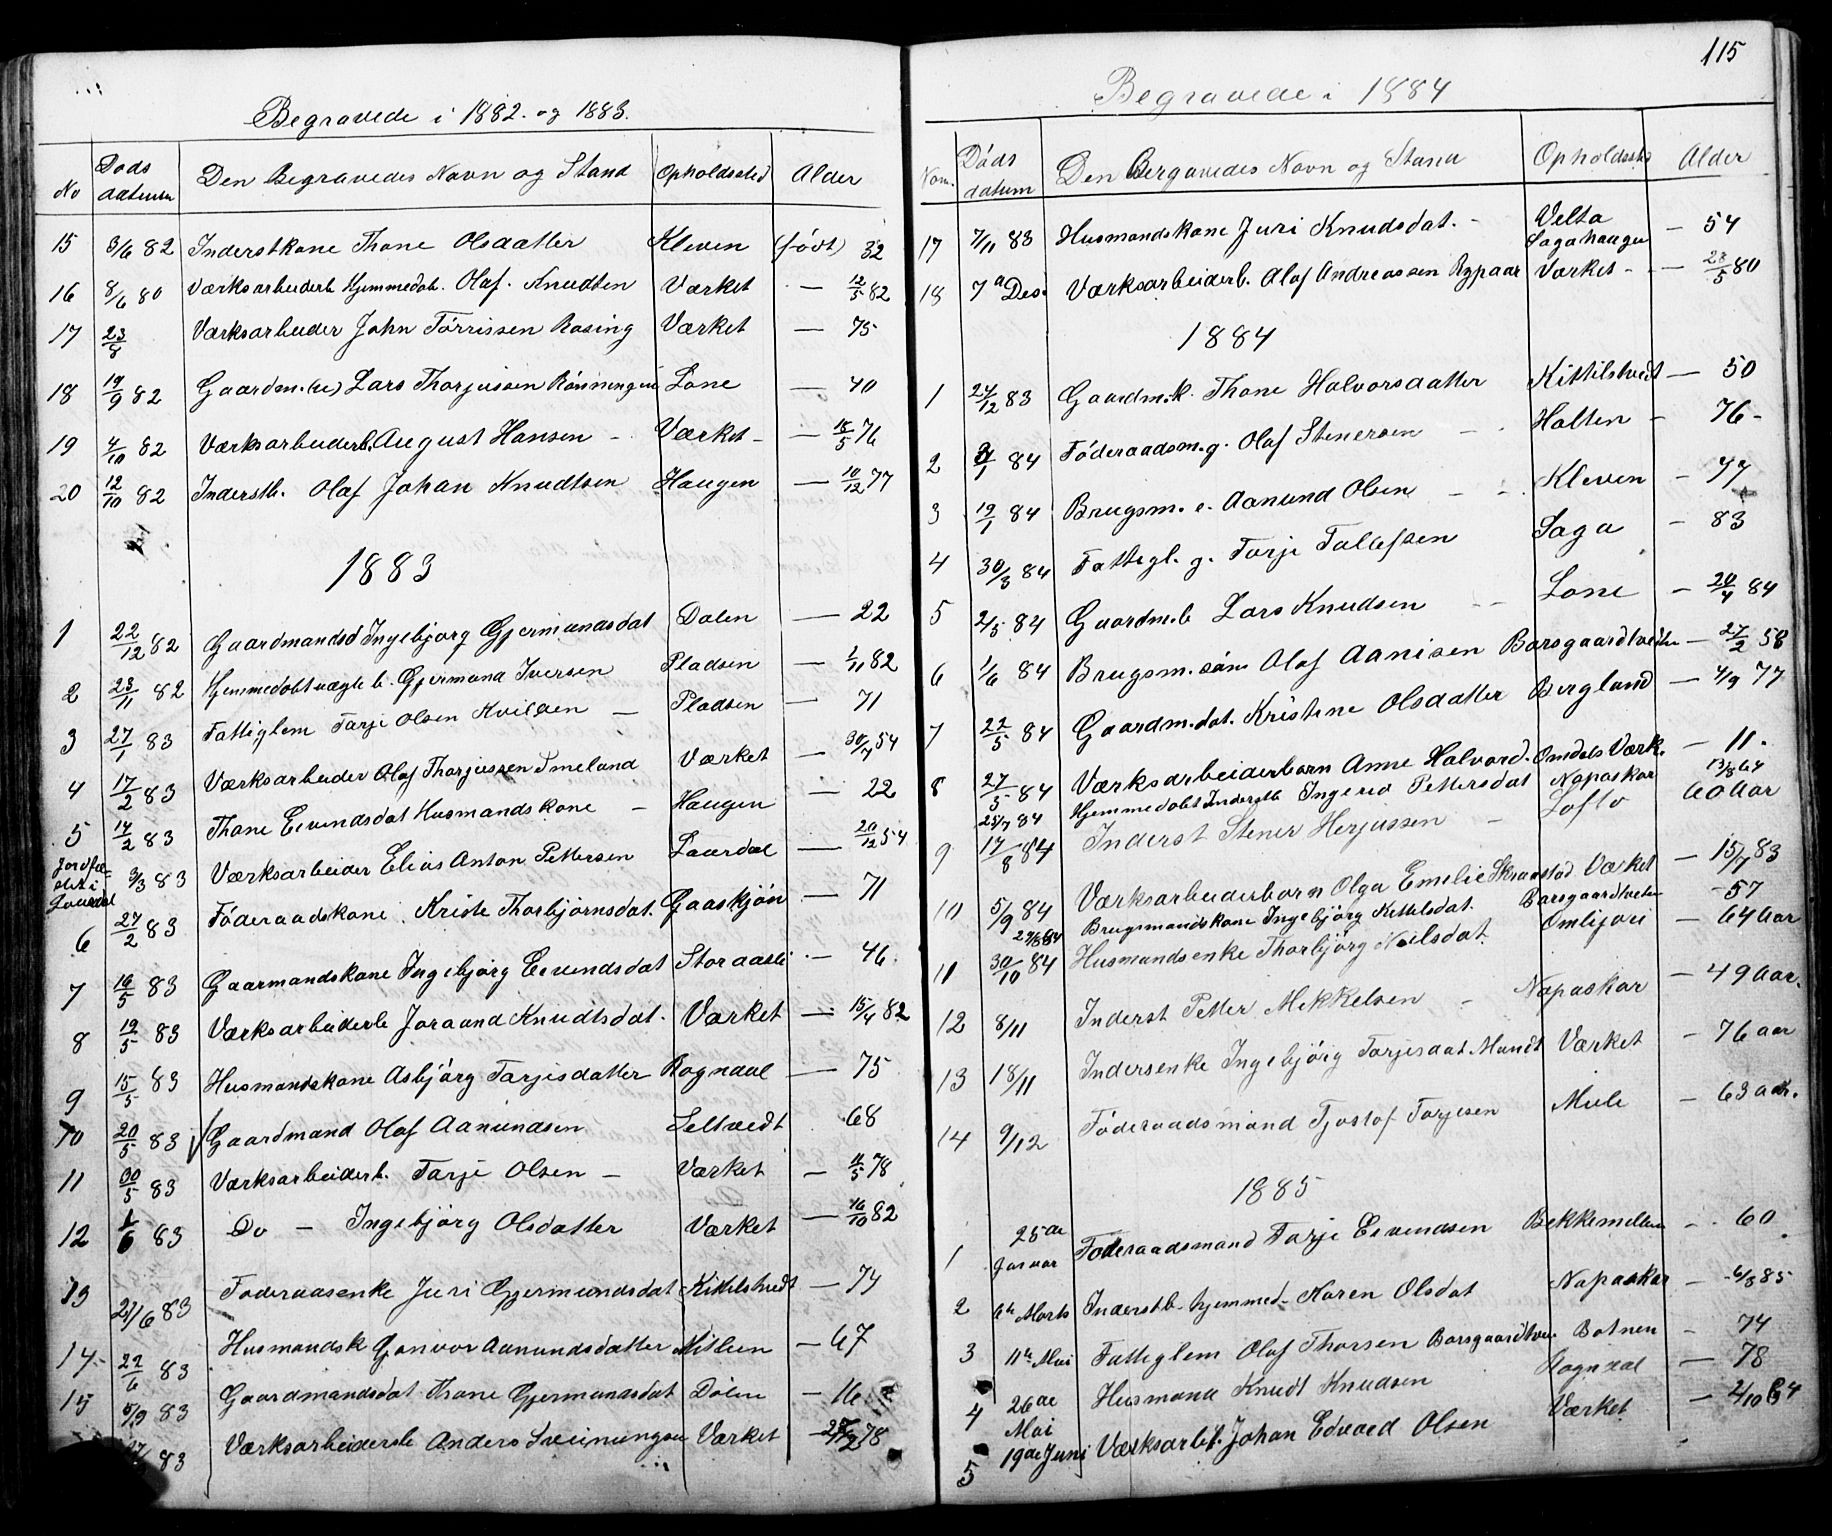 Begravede i 1882. og 1883.
No Døds datum Den Begravedes Navn og Stand Opholdssted Alder
15 3/6 82 Inderstkone Thone Olsdatter Kleven (født) 32
16 8/6 80 Værksarbeiderb. Hjemmedøb. Olaf KnudtenVærket - 12/5 82
17 23/8 Værksarbeider John Tørrissen Rosing Værket — 75
18 19/9 82 Gaardm. Lars Thorjussen Rønningen Lone — 40
19 4/10 82 Værksarbeiderb. August Hansen - Værket - — 18/5 76
20 12/10 82 Inderstb. Olaf Johan Knudtsen Haugen — 10/12 77
1883
1 22/12 82 Gaardmandsd Ingebjorg Gjermundsdat Dalen — 22
2 28/11 82 Hjemmedøbt nægte b. Gjermund Iversen Pladsen — 1/11 82
3 27/1 83 Fattiglem Tarje Olsen Kvilden — Pladsen — 71
4 17/2 83 Værksarbeider Olaf Thorjussen Smeland Værket — 30/7 54
5 14/2 83 Thone Eivendsdat Husmandskone — Haugen — 22
Jordfæstet i Laurdal 3/3 83 Værksarbeider Elias Anton Pettersen Laurdal — 20/12 54
6 27/2 83 Føderaadskone Kriste Thorbjørnsdat. Gaaskjøn — 71
7 16/5 83 Gaarmandskone Ingebjørg Eivendsdat Storaasli — 46.
8 19/5 83 Værksarbeiderb Joraand Knudtsdat. Værket — 15/4 82
9 15/5 83 Husmandskone Asbjørg Tarjesdatter Rogndal — 75
10 20/5 83 Gaardmand Olaf Aanundsen Seltvedt 68
11 30/5 83 Værksarbeiderb. Tarje Olsen — Værket — 11/5 78
12 1/6 83 Do — Ingebjørg Olsdatter Værket — 16/10 82
13 21/6 83 Føderaasenke Juri Gjermundsdat Kittilstvedt — 74
14 22/6 83 Husmandsk Gonvor Aanundsdatter Mitleen — 67
15 5/9 83 Gaardmandsdat Thone Gjermundsdat Dalen — 16
83 Værksarbeiderb Anders Sveinungsen Værket 78
115
Begravede i 1884
Nom. Døds datum Den Bergavedes Navn og Stand Opholdsste Alder
17 7/11 83 Husmandskone Juri Knudsdat. - Velta Sagahaugen — 54
18 7de Des. Værksarbeiderb. Olaf Andreassen Rypaas Værket - — 23/5 80
1884
1 24/12 83 Gaardm.k. Thone Halvorsdatter Kittilstvedt — 50
2 84 Føderaadsm.g. Olaf Stenersen Holten — 76-
3 19/1 84 Brugsm. e. Aanund Olsen Kleven — 77
4 30/3 84 Fattigl. g. Tarje Tallefsen Saga — 83
5 2/5 84 Gaardm.b Lars Knudsen Lone — 20/4 84
6 1/6 84 Brugsm. søn Olaf Aanisen Borsgaardtveiten — 27/2 58
7 22/5 84 Gaardm.dat. Kristine Olsdatter Bergland — 4/9 77
8 27/5 84 Værksarbeiderbarn Anne Halvord. Omdals Værk. — 11.
25/7 84 Hjemmedøbt Inderstb Ingerid Pettersdat Napaskar 13/8 64
9 17/8 84 Inderst Stener Herjussen - Lofto 60 Aar
10 5/9 84 Værksarbeiderbarn Olga Emilie Skranstad Værket — 15/7 83
Brugsmandskone Ingebjørg Kittelsdat. Borsgaardtveten — 57
11 30/10 84 Husmandsenke Thorbjørg Neilsdat. Omlijori — 64 Aar
12 8/11 Inderst Petter Mekkelsen - Napaskar — 49 Aar.
13 18/11 Indersenke Ingebjørg Tarjesdat. Mandt Værket — 76 aar
14 9/12 Føderaadsmand Tjostof Tarjesen Mule — 63 aar.
1885
1 25de Januar Føderaadsmand Tarje Eivendsen Bekkemellem — 60
2 6te Marts Inderstb. hjemmed. Karen Olsdat Napaskar — 6/3 85
3 11te Mai Fattiglem Olaf Thorsen Borsgaardtvei Botnen — 74
4 26de Mai Husmand Knudt Knudsen Rogndal — 78
5 19de Juni Værksarbf. Johan Edvard Olsen Værket — 2/10 64